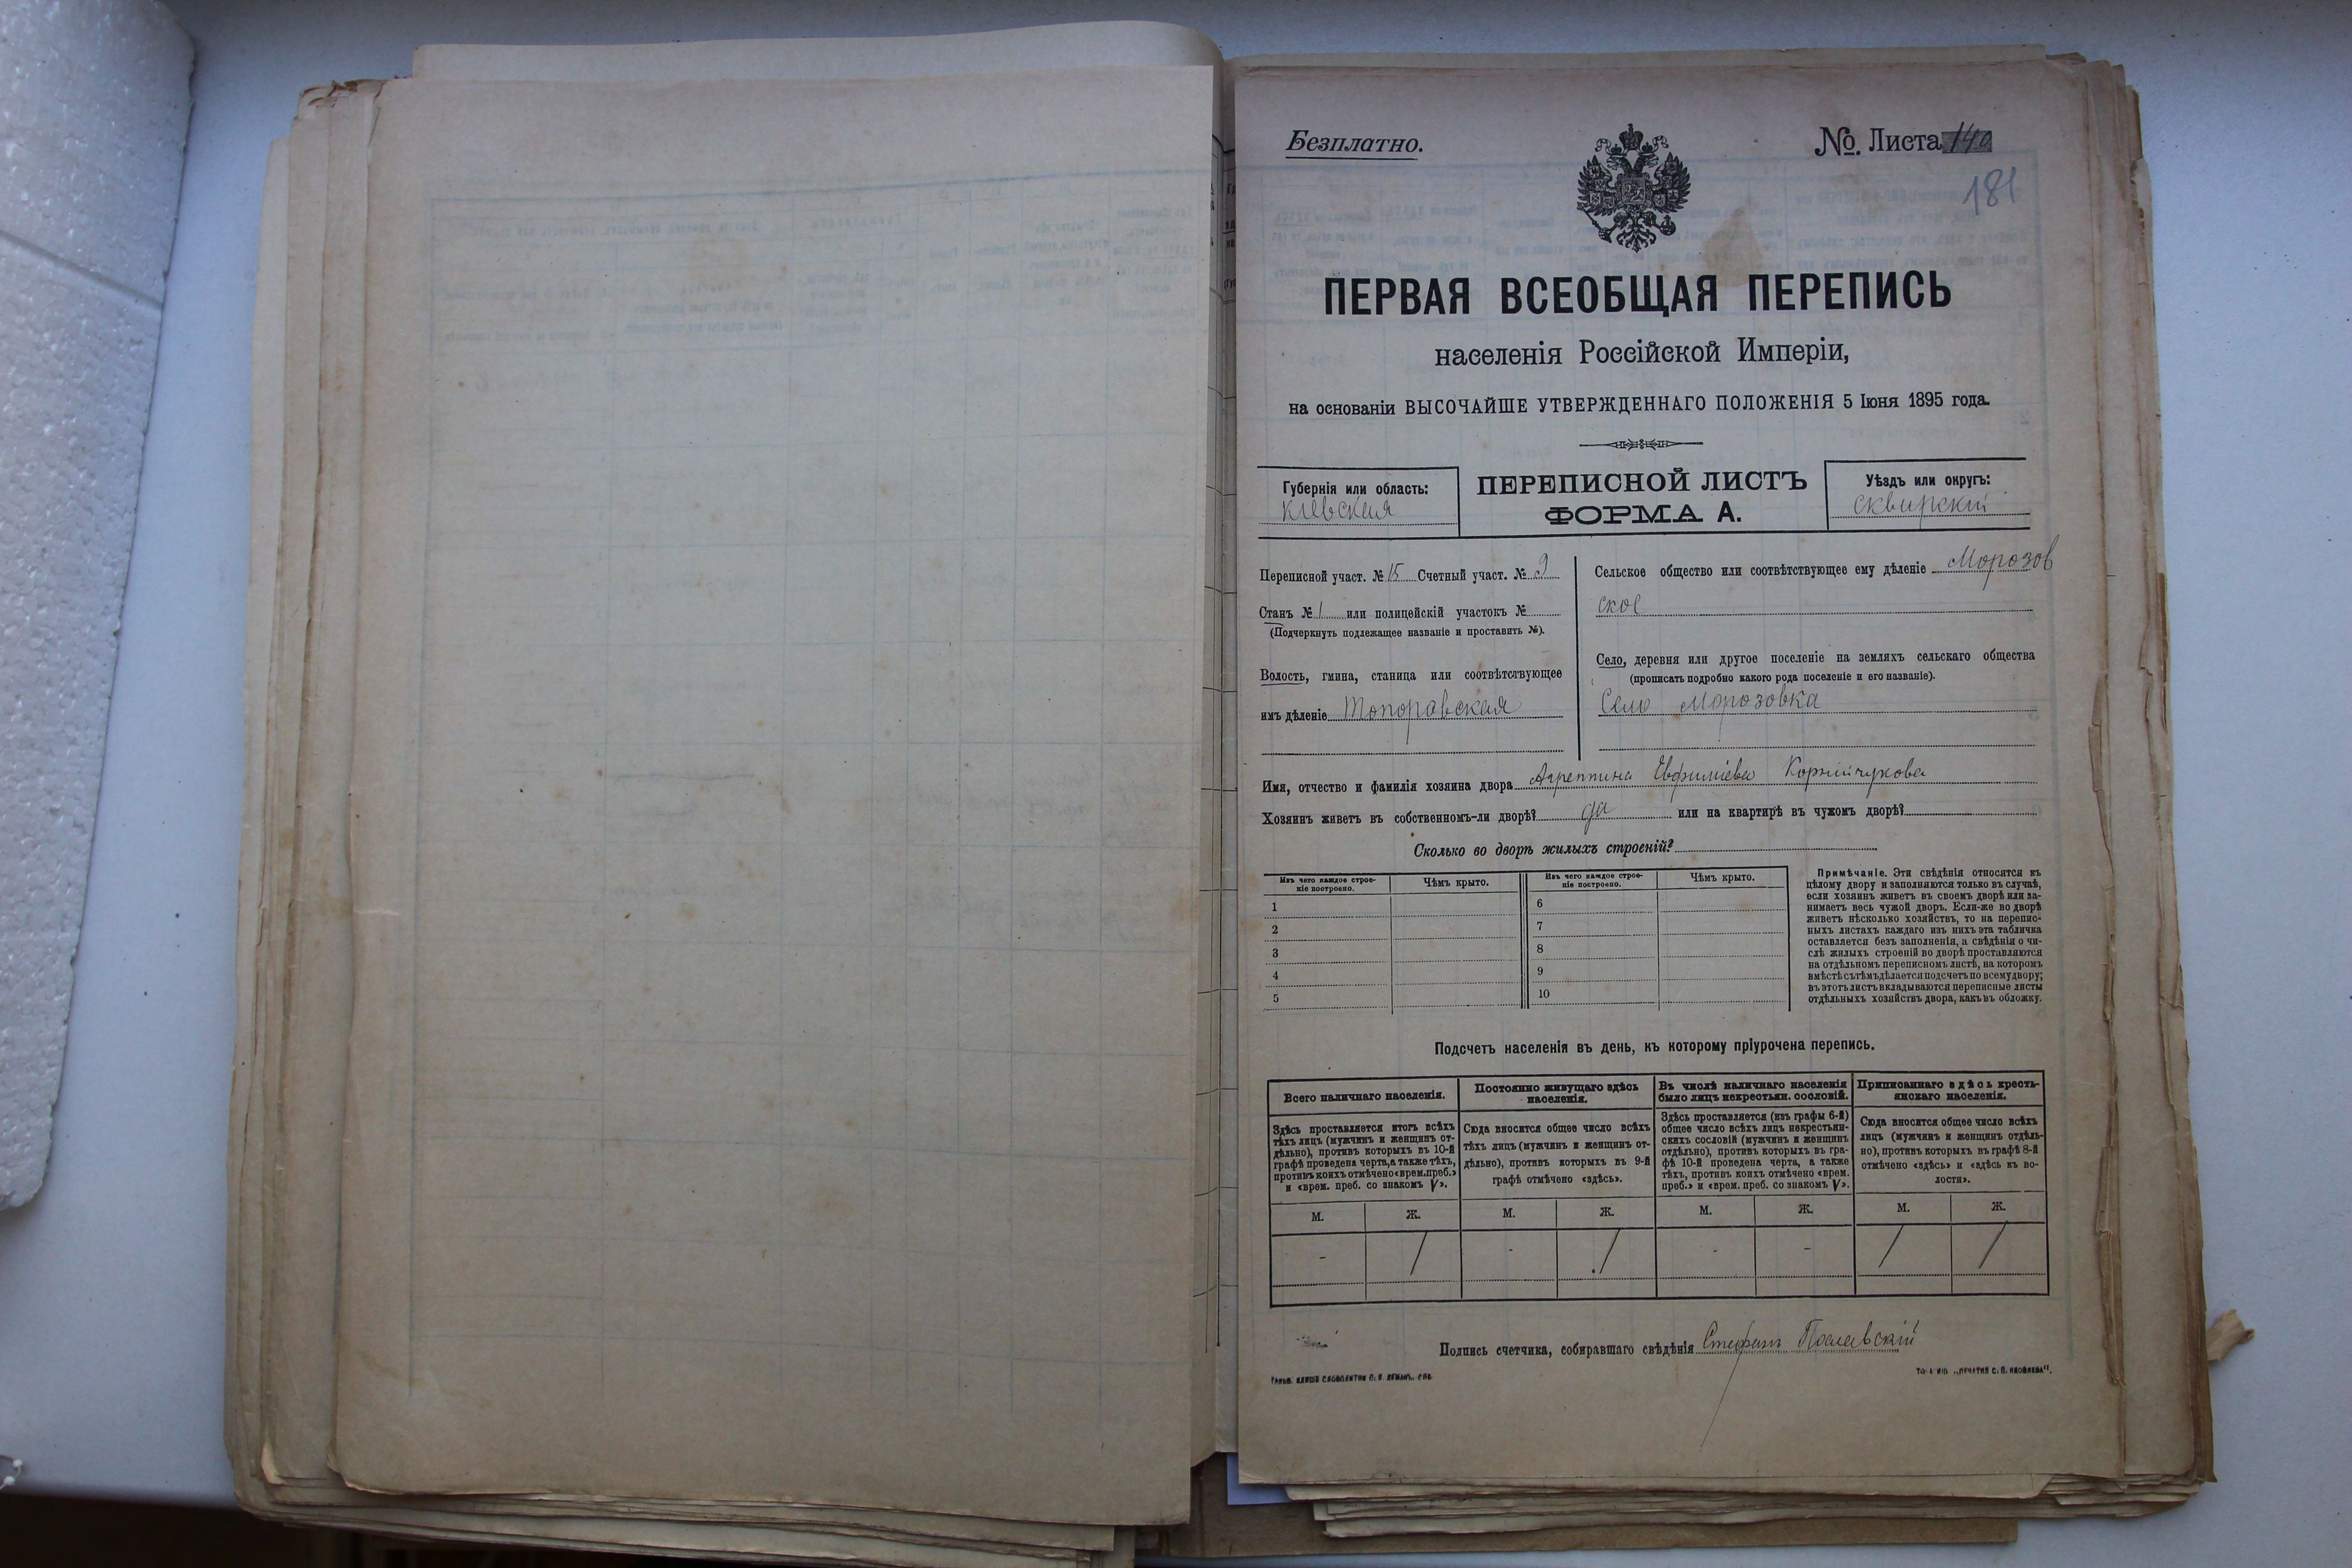 Безплатно.
№ Листа 140
181
ПЕРВАЯ ВСЕОБЩАЯ ПЕРЕПИСЬ
населенія Россійской Имперіи,
на основаніи ВЫСОЧАЙШЕ УТВЕРЖДЕННАГО ПОЛОЖЕНІЯ 5 Іюня 1895 года.
Губернія или область:
Кіевская
ПЕРЕПИСНОЙ ЛИСТЪ
ФОРМА А.
Уѣздъ или округъ:
Сквирскій
Переписной участ. № 15 Счетный участ. № 9
Станъ № 1 или полицейскій участокъ №
(Подчеркнуть подлежащее названіе и проставить №).
Волость, гмина, станица или соотвѣтствующее
имъ дѣленіе Топоравская
Сельское общество или соотвѣтствующее ему дѣленіе Морозов
ское
Село, деревня или другое поселеніе на земляхъ сельскаго общества
(прописать подробно какого рода поселеніе и его названіе).
Село Морозовка
Имя, отчество и фамилія хозяина двора Агреппина Евфиміева Корнійчукова
Хозяинъ живетъ въ собственномъ-ли дворѣ? да или на квартирѣ въ чужомъ дворѣ?
Сколько во дворѣ жилыхъ строеній?
Изъ чего каждое строе-
ніе построено.
Чѣмъ крыто.
1
2
3
4
5
Изъ чего каждое строе-
ніе построено.
Чѣмъ крыто.
6
7
8
9
10
Примѣчаніе. Эти свѣдѣнія относятся къ
цѣлому двору и заполняются только въ случаѣ,
если хозяинъ живетъ въ своемъ дворѣ или за-
нимаетъ весь чужой дворъ. Если-же во дворѣ
живетъ нѣсколько хозяйствъ, то на перепис-
ныхъ листахъ каждаго изъ нихъ эта табличка
оставляется безъ заполненія, а свѣдѣнія о чи-
слѣ жилыхъ строеній во дворѣ проставляются
на отдѣльномъ переписномъ листѣ, на которомъ
вмѣстѣ съ тѣмъ дѣлается подсчетъ по всему двору;
въ этотъ листъ вкладываются переписные листы
отдѣльныхъ хозяйствъ двора, какъ въ обложку.
Подсчетъ населенія въ день, къ которому пріурочена перепись.
Всего наличнаго населенія.
Здѣсь проставляется итогъ всѣхъ
тѣхъ лицъ (мужчинъ и женщинъ от-
дѣльно), противъ которыхъ въ 10-й
графѣ проведена черта, а также тѣхъ,
противъ коихъ отмѣчено «врем. преб.»
и «врем. преб. со знакомъ V».
М. Ж.
- 1
Постоянно живущаго здѣсь
населенія.
Сюда вносится общее число всѣхъ
тѣхъ лицъ (мужчинъ и женщинъ от-
дѣльно), противъ которыхъ въ 9-й
графѣ отмѣчено «здѣсь».
М. Ж.
- 1
Въ числѣ наличнаго населенія
было лицъ некрестьян. сословій.
Здѣсь проставляется (изъ графы 6-й)
общее число всѣхъ лицъ некрестьян-
скихъ сословій (мужчинъ и женщинъ
отдѣльно), противъ которыхъ въ гра-
фѣ 10-й проведена черта, а также
тѣхъ, противъ коихъ отмѣчено «врем.
преб.» и «врем. преб. со знакомъ V».
М. Ж.
- -
Приписаннаго здѣсь кресть-
янскаго населенія.
Сюда вносится общее число всѣхъ
лицъ (мужчинъ и женщинъ отдѣль-
но), противъ которыхъ въ графѣ 8-й
отмѣчено «здѣсь» и «здѣсь въ во-
лости».
М. Ж.
1 1
Подпись счетчика, собиравшаго свѣдѣнія Стефанъ